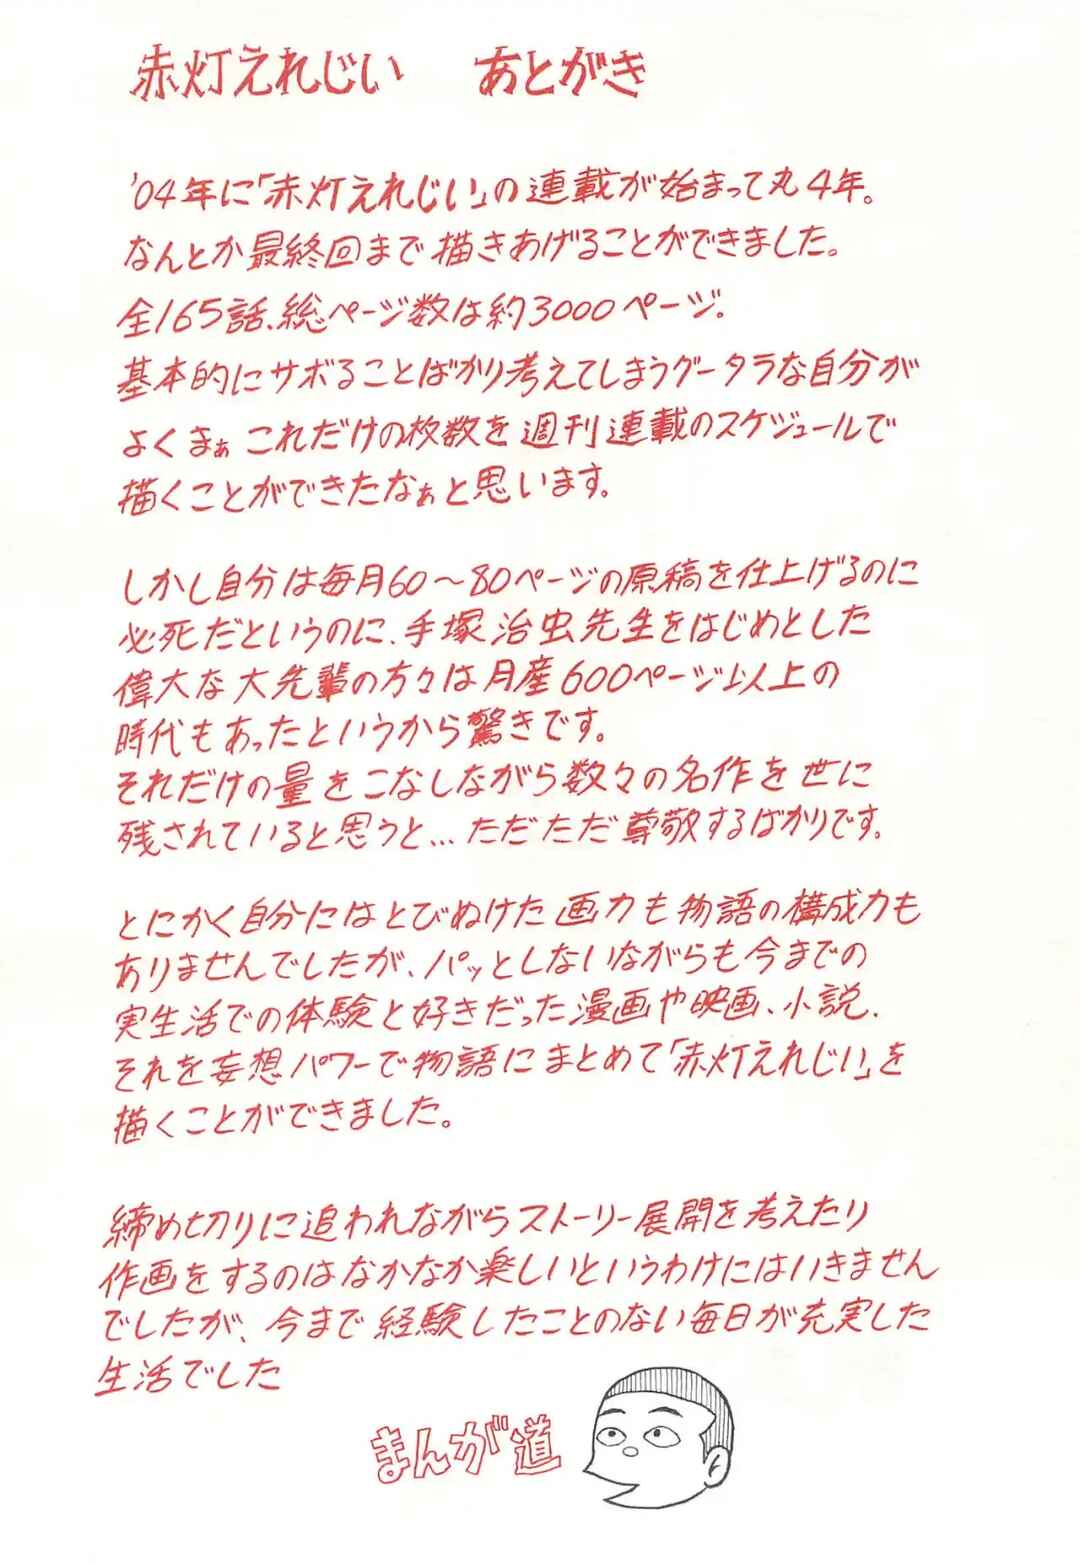 赤灯えれじい　あとがき
'04年に「赤灯えれじい」の連載が始まって丸4年。
なんとか最終回まで描きあげることができました。
全165話、総ページ数は約3000ページ。
基本的にサボることばかり考えてしまうグータラな自分が
よくまぁこれだけの枚数を週刊連載のスケジュールで
描くことができたなぁと思います。
しかし自分は毎月60～80ページの原稿を仕上げるのに
必死だというのに、手塚治虫先生をはじめとした
偉大な大先輩の方々は月産600ページ以上の
時代もあったというから驚きです。
それだけの量をこなしながら数々の名作を世に
残されていると思うと…ただただ尊敬するばかりです。
とにかく自分にはとびぬけた画力も物語の構成力も
ありませんでしたが、パッとしないながらも今までの
実生活での体験と好きだった漫画や映画、小説、
それを妄想パワーで物語にまとめて「赤灯えれじい」を
描くことができました。
締め切りに追われながらストーリー展開を考えたり
作画をするのはなかなか楽しいというわけにはいきません
でしたが、今まで経験したことのない毎日が充実した
生活でした
まんが道